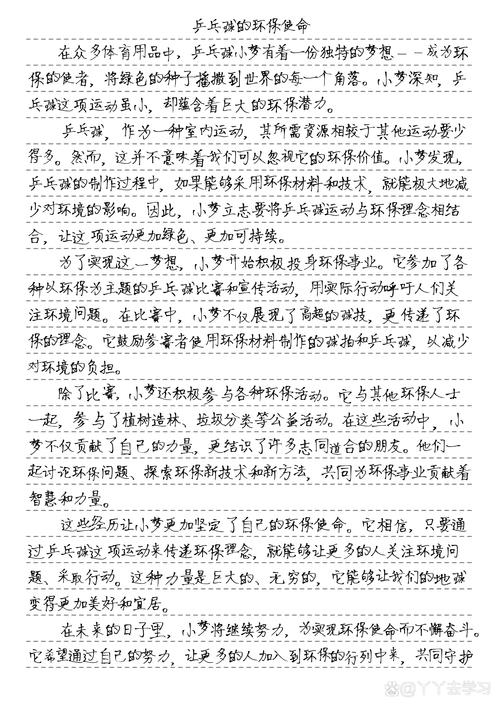 乒乓球的环保使命
在众多体育用品中，乒乓球小梦有着一份独特的梦想——成为环
保的使者，将绿色的种子播撒到世界的每一个角落。小梦深知，乒
乓球这项运动虽小，却蕴含着巨大的环保潜力。
乒乓球，作为一种室内运动，其所需资源相较于其他运动要少
得多。然而，这并不意味着我们可以忽视它的环保价值。小梦发现，
乒乓球的制作过程中，如果能够采用环保材料和技术，就能极大地减
少对环境的影响。因此，小梦立志要将乒乓球运动与环保理念相结
合，让这项运动更加绿色、更加可持续。
为了实现这一梦想，小梦开始积极投身环保事业。它参加了各
种以环保为主题的乒乓球比赛和宣传活动，用实际行动呼吁人们关
注环境问题。在比赛中，小梦不仅展现了高超的球技，更传递了环
保的理念。它鼓励参赛者使用环保材料制作的球拍和乒乓球，以减少
对环境的负担。
除了比赛，小梦还积极参与各种环保活动。它与其他环保人士
一起，参与了植树造林、垃圾分类等公益活动。在这些活动中，小
梦不仅贡献了自己的力量，更结识了许多志同道合的朋友。他们一
起讨论环保问题、探索环保新技术和新方法，共同为环保事业贡献着
智慧和力量。
这些经历让小梦更加坚定了自己的环保使命。它相信，只要通
过乒乓球这项运动来传递环保理念，就能够让更多的人关注环境问
题、采取行动。这种力量是巨大的、无穷的，它能够让我们的地球
变得更加美好和宜居。
在未来的日子里，小梦将继续努力，为实现环保使命而不懈奋斗。
它希望通过自己的努力，让更多的人加入到环保的行列中来，共同守护
@丫丫去学习